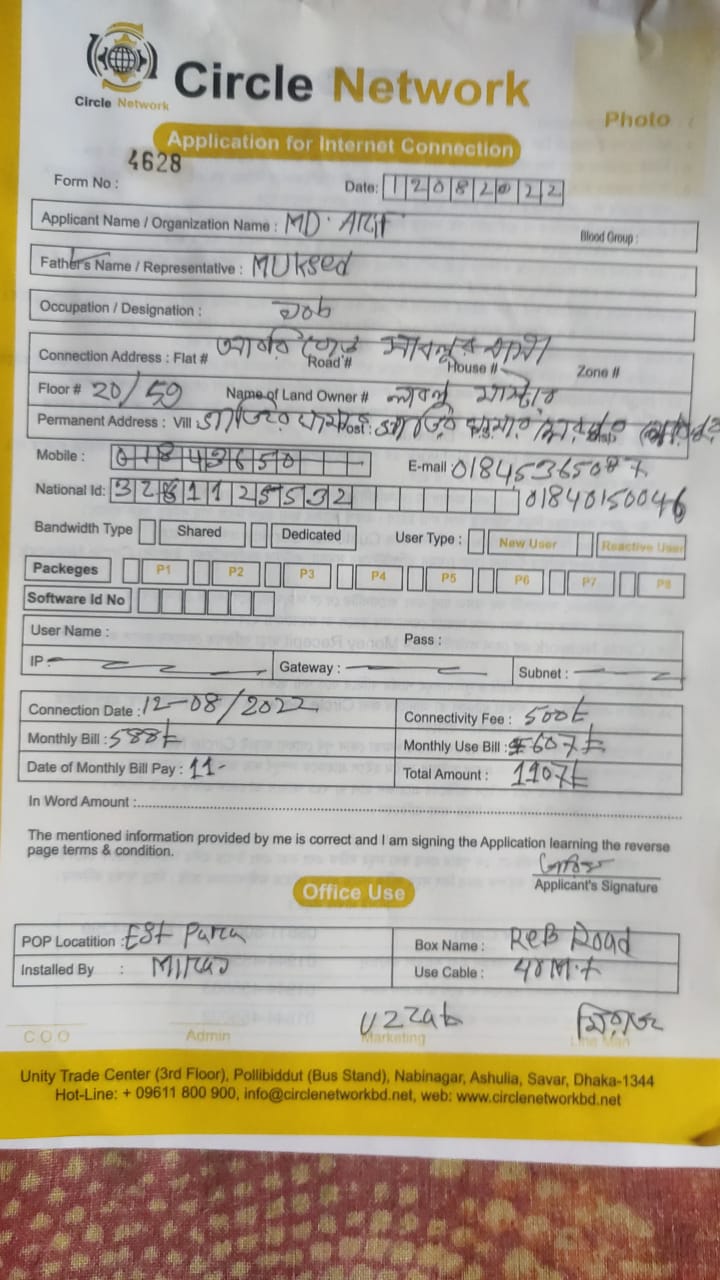 Circle Network
Circle Network
Photo
Application for Internet Connection
4628
Form No :
Date: 12082022
Applicant Name / Organization Name : MD. ARIF
Blood Group :
Father's Name / Representative : MUKsed
Occupation / Designation : Job
Connection Address : Flat # Road # House # Zone #
Floor # 20/59 Name of Land Owner # লাবলু মাস্টার
Permanent Address : Vill Post :
Mobile : 01843650 E-mail : 01845365087
National Id: 01840150046
Bandwidth Type Shared Dedicated User Type : New User Reactive User
Packeges P1 P2 P3 P4 P5 P6 P7 P8
Software Id No
User Name : Pass :
IP Gateway : Subnet :
Connection Date : 12-08/2022 Connectivity Fee : 500t
Monthly Bill : 588t Monthly Use Bill : 607t
Date of Monthly Bill Pay : 11- Total Amount : 1107t
In Word Amount :
The mentioned information provided by me is correct and I am signing the Application learning the reverse
page terms & condition.
Applicant's Signature
Office Use
POP Locatition : ESt Para Box Name : ReB Road
Installed By : MIRAJ Use Cable : 40 M.t
মিরাজ
C.O.O Admin Marketing Line Man
Unity Trade Center (3rd Floor), Pollibiddut (Bus Stand), Nabinagar, Ashulia, Savar, Dhaka-1344
Hot-Line: + 09611 800 900, info@circlenetworkbd.net, web: www.circlenetworkbd.net